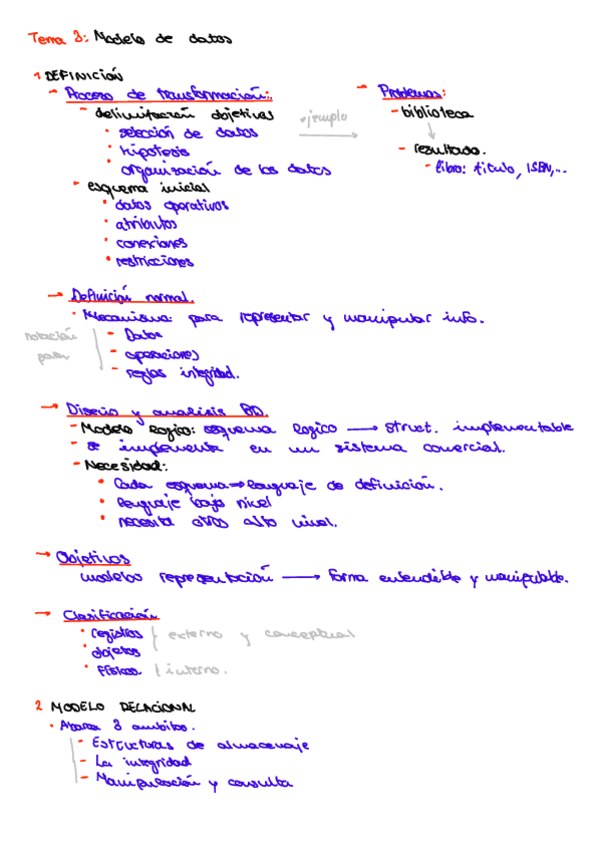 Tema 3: Modelo de datos
1 DEFINICIÓN
→ Proceso de transformación:
- delimitación objetivos
• selección de datos
• hipotesis
• organización de los datos
• ejemplo
→ Problemas:
- biblioteca
- resultado.
- libro: titulo, ISBN,...
- esquema inicial
• datos operativos
• atributos
• conexiones
• restricciones
→ Definición normal.
• Mecanismo para representar y manipular info.
notación para
- Datos
- operaciones
- reglas integridad.
→ Diseño y analisis BD.
- Modelo logico: esquema logico → struct. implementable
- se implementa en un sistema comercial.
- Necesidad:
• Cada esquema → lenguaje de definición.
• lenguaje bajo nivel
• necesita alto nivel.
→ Objetivos
modelos representación → forma entendible y manipulable.
→ Clasificación
• registros
• objetos
externo y conceptual
• físicos
interno.
2 MODELO RELACIONAL
• Abarca 3 ambitos.
- Estructuras de almacenaje
- La integridad
- Manipulación y consulta